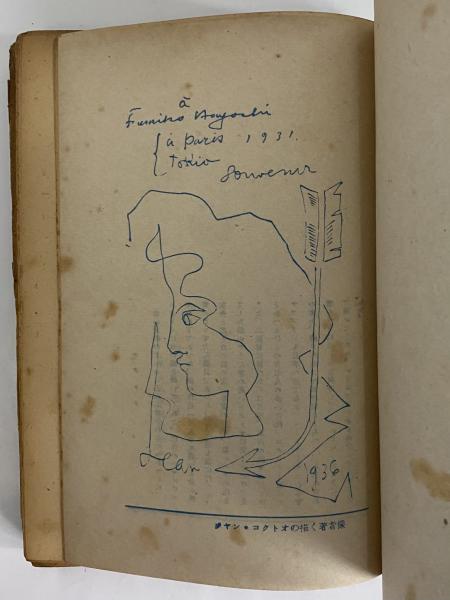 à
Fumiko Hayashi
à Paris 1931.
Tokio
Souvenir
Jean
1936
ヂヤン・コクトオの描く著者像